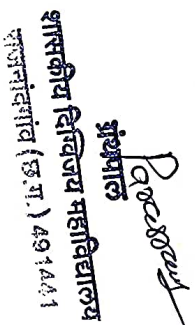 ग्रंथपाल
शासकीय दिग्विजय महाविद्यालय
राजनांदगांव (छ.ग.) 491441